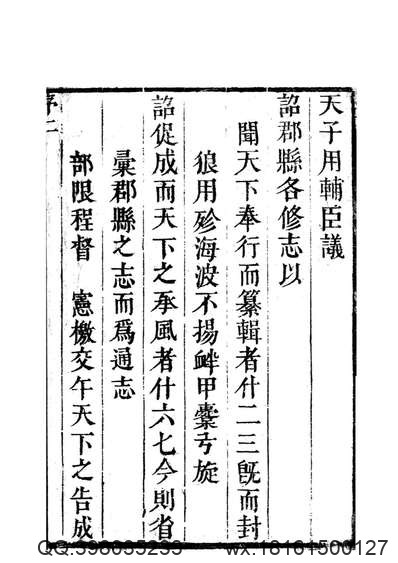 天子用輔臣議
詔郡縣各修志以
聞天下奉行而纂輯者什二三旣而封
狼用殄海波不揚衅甲櫜弓旋
詔促成而天下之承風者什六七今則省
彙郡縣之志而爲通志
部限程督 憲檄交午天下之告成
序二
QQ:398035233 wx:18161500127